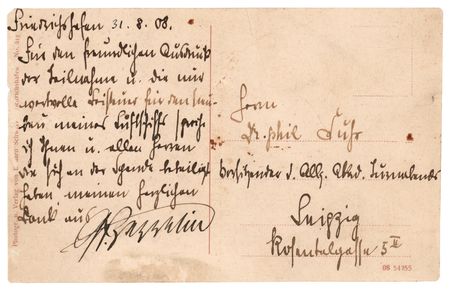 Friedrichshafen 31. 8. 08.
Für den freundlichen Ausdruck
der Teilnahme u. die mir
wertvolle Beisteuer für den Neu-
bau meines Luftschiffs spreche
ich Ihnen u. allen Herren
die sich an der Spende beteiligt
haben, meinen herzlichen
Dank aus
Gf. Zeppelin
Herrn
Dr. phil Fuhr
Vorsitzender d. Allg. Akad. Turnabends
Leipzig
Rosentalgasse 5 II
08 54755